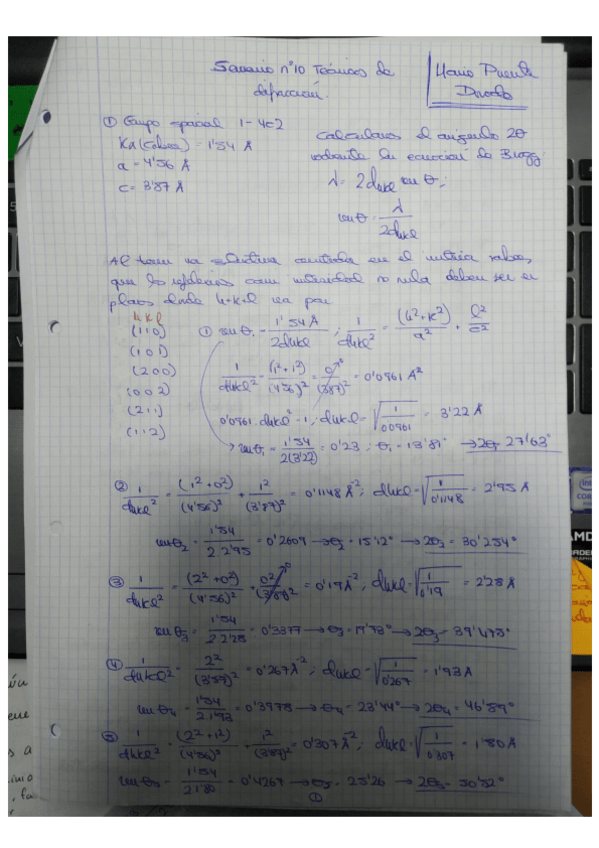 Seminario nº10 Técnicas de
difracción.
Mario Puente
① Grupo espacial I-4c2
Kα (cobre) = 1'54 Å
a = 4'56 Å
c = 3'87 Å
Calculamos el ángulo 2θ
mediante la ecuación de Bragg:
λ = 2dhkl sen θ;
sen θ = λ / 2dhkl
Al tener una estructura centrada en el interior
que las reflexiones con intensidad no nula deben ser en
planos donde h+k+l sea par
h k l
(1 1 0)
(1 0 1)
(2 0 0)
(0 0 2)
(2 1 1)
(1 1 2)
① sen θ1 = 1'54 Å / 2dhkl ; 1/dhkl² = (h²+k²)/a² + l²/c²
1/dhkl² = (1²+1²)/(4'56)² + 0²/(3'87)² = 0'0961 Å²
0'0961 · dhkl² = 1; dhkl = √(1/0'0961) = 3'22 Å
sen θ1 = 1'54/2(3'22) = 0'23; θ1 = 13'81° → 2θ1 = 27'63°
② 1/dhkl² = (1²+0²)/(4'56)² + 1²/(3'87)² = 0'1148 Å⁻²; dhkl = √(1/0'1148) = 2'95 Å
sen θ2 = 1'54/2·2'95 = 0'2609 → θ2 = 15'12° → 2θ2 = 30'254°
③ 1/dhkl² = (2²+0²)/(4'56)² + 0²/(3'87)² = 0'19 Å⁻²; dhkl = √(1/0'19) = 2'28 Å
sen θ3 = 1'54/2·2'28 = 0'3377 → θ3 = 19'73° → 2θ3 = 39'473°
④ 1/dhkl² = 2²/(3'87)² = 0'267 Å⁻²; dhkl = √(1/0'267) = 1'93 Å
sen θ4 = 1'54/2·1'93 = 0'3978 → θ4 = 23'44° → 2θ4 = 46'89°
⑤ 1/dhkl² = (2²+1²)/(4'56)² + 1²/(3'87)² = 0'307 Å⁻²; dhkl = √(1/0'307) = 1'80 Å
sen θ5 = 1'54/2·1'80 = 0'4267 → θ5 = 25'26 → 2θ5 = 50'52°
①